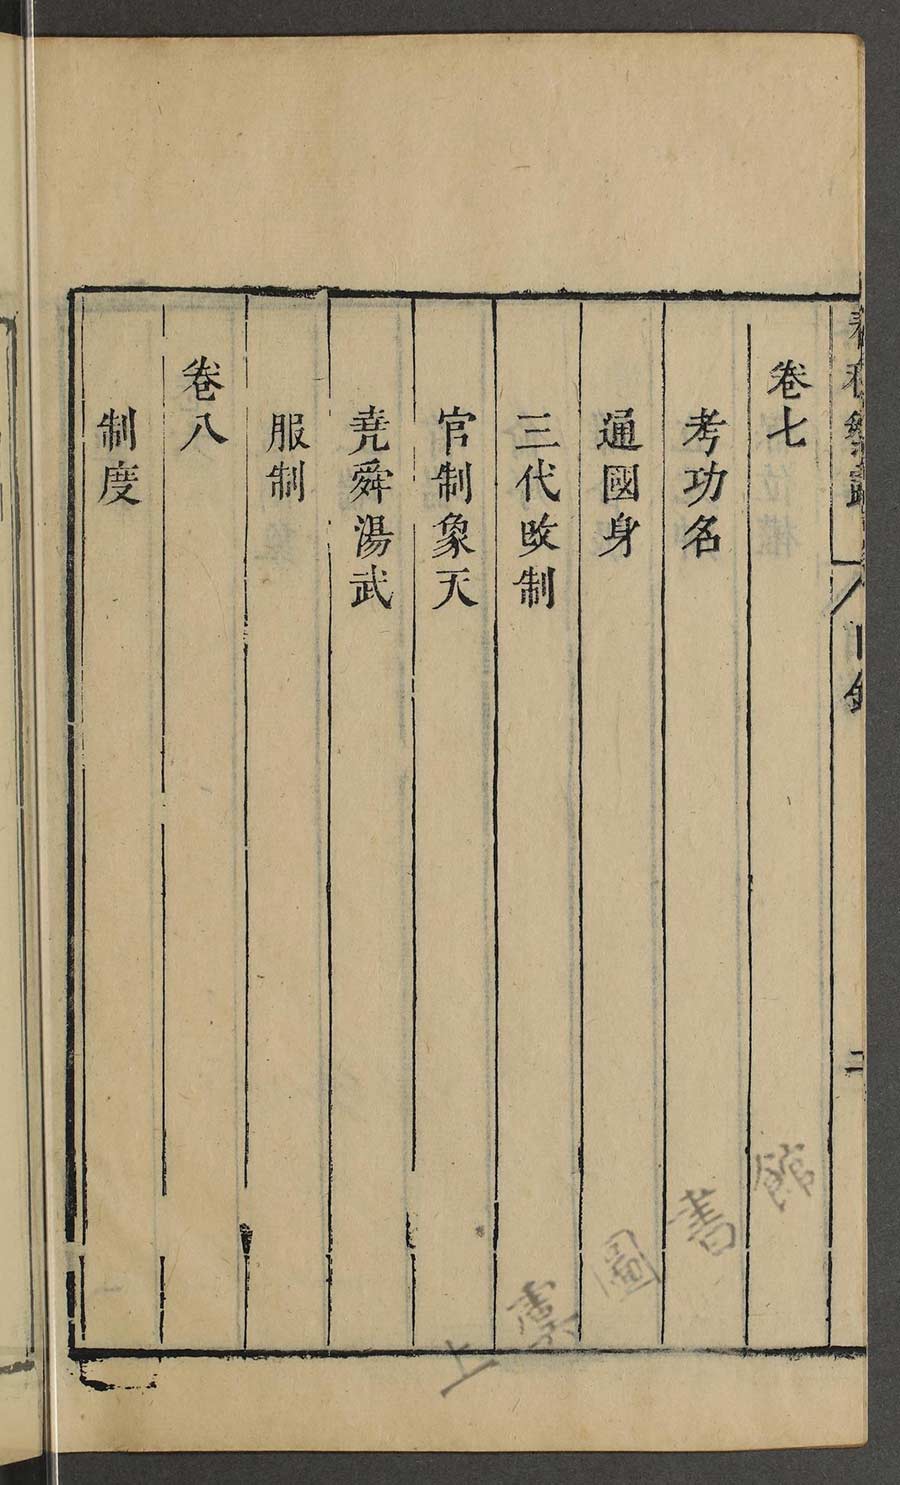 春秋繁露 目錄 二
卷七
考功名
通國身
三代改制
官制象天
堯舜湯武
服制
卷八
制度
上海圖書館